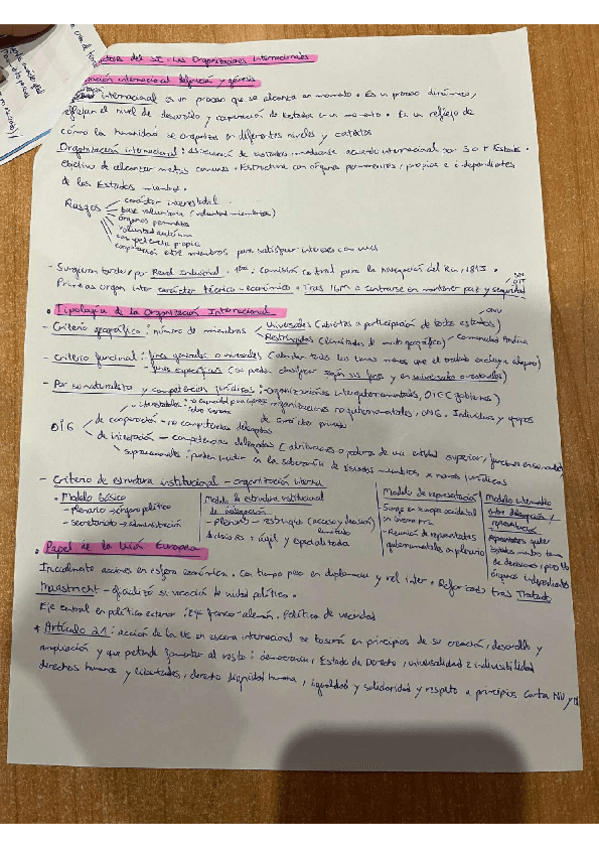 del SI: Las Organizaciones Internacionales
internacional definición y génesis
internacional es un proceso que se alcanza en momento. Es un proceso dinámico,
reflejan el nivel de desarrollo y cooperación de Estados en un momento. Es un reflejo de
cómo la humanidad se organiza en diferentes niveles y
Organización internacional: asociación de Estados mediante acuerdo internacional por 3 o + Estados.
Objetivo de alcanzar metas comunes. Estructura con órganos permanentes, propios e independientes
de los Estados miembros.
Rasgos
carácter interestatal
base voluntaria (voluntad miembros)
órganos permanentes
voluntad autónoma
competencia propia
cooperación entre miembros para satisfacer intereses comunes
- Surgieron tarde por Revol. Industrial. 1ª: Comisión Central para la Navegación del Rin, 1815.
Primeras organ. inter carácter técnico-económico. Tras IGM a centrarse en mantener paz y seguridad
SDN
OIT
• Tipología de la Organización Internacional
ONU
- Criterio geográfico: número de miembros
Universales (abiertas a participación de todos estados)
Restringidas (limitadas de modo geográfico) - Comunidad Andina
- Criterio funcional: fines generales o universales (abordar todos los temas menos que el tratado excluya alguno)
- fines específicos (se puede clasificar según sus fines y en universales o regionales)
- Por su naturaleza y competencias jurídicas: - organizaciones intergubernamentales, OIG (gobiernos)
organizaciones no gubernamentales, ONG. Individuos y grupos
de carácter privado
OIG
de cooperación - no competencias delegadas
de integración - competencias delegadas (atribuciones o poderes de una entidad superior, funciones en sociedades)
supranacionales: pueden incidir en la soberanía de Estados miembros a normas jurídicas
- Criterio de estructura institucional - organización interna
• Modelo básico
- plenario -> órgano político
- secretariado -> administración
Modelo la estructura institucional
de integración
- plenario - restringido (acceso y decisión)
limitado
decisiones + ágil y especializada
Modelo de representación
Surge en Europa occidental
en Guerra Fría
- Reunión de representantes
gubernamentales en plenario
Modelo intermedio
entre delegación y
representación
Representantes gubern
Estados mucha toma
de decisiones, pero los
órganos independientes
• Papel de la Unión Europea
Incidente acciones en esfera económica. Con tiempo paso en diplomacia y rel inter. Reforzado tras Tratado
Maastricht - oficializó su vocación de unidad política.
Eje central en política exterior: Eje franco-alemán. Política de vecindad
* Artículo 21: acción de la UE en escena internacional se basará en principios de su creación, desarrollo y
ampliación y que pretende fomentar al resto: democracia, Estado de Derecho, universalidad e indivisibilidad
derechos humanos y libertades, derecho dignidad humana, igualdad y solidaridad y respeto a principios Carta NU y